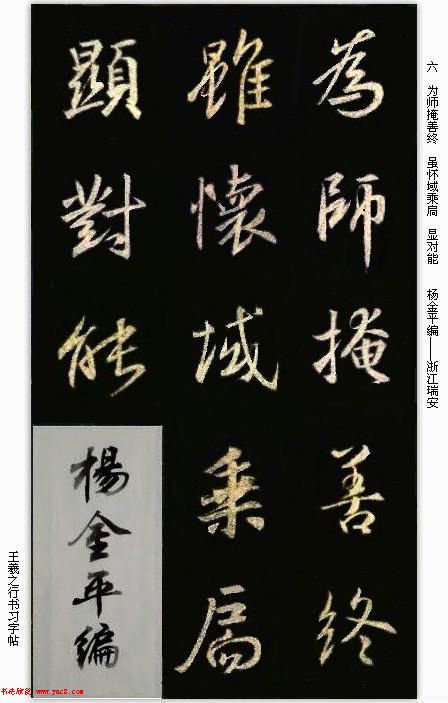 六 为师掩善终 虽怀域乘局 显对能 杨金平编——浙江瑞安
為師掩善終
雖懷域乗局
顯對能
楊金平編
王羲之行书习字帖
书法欣赏 www.yac8.com